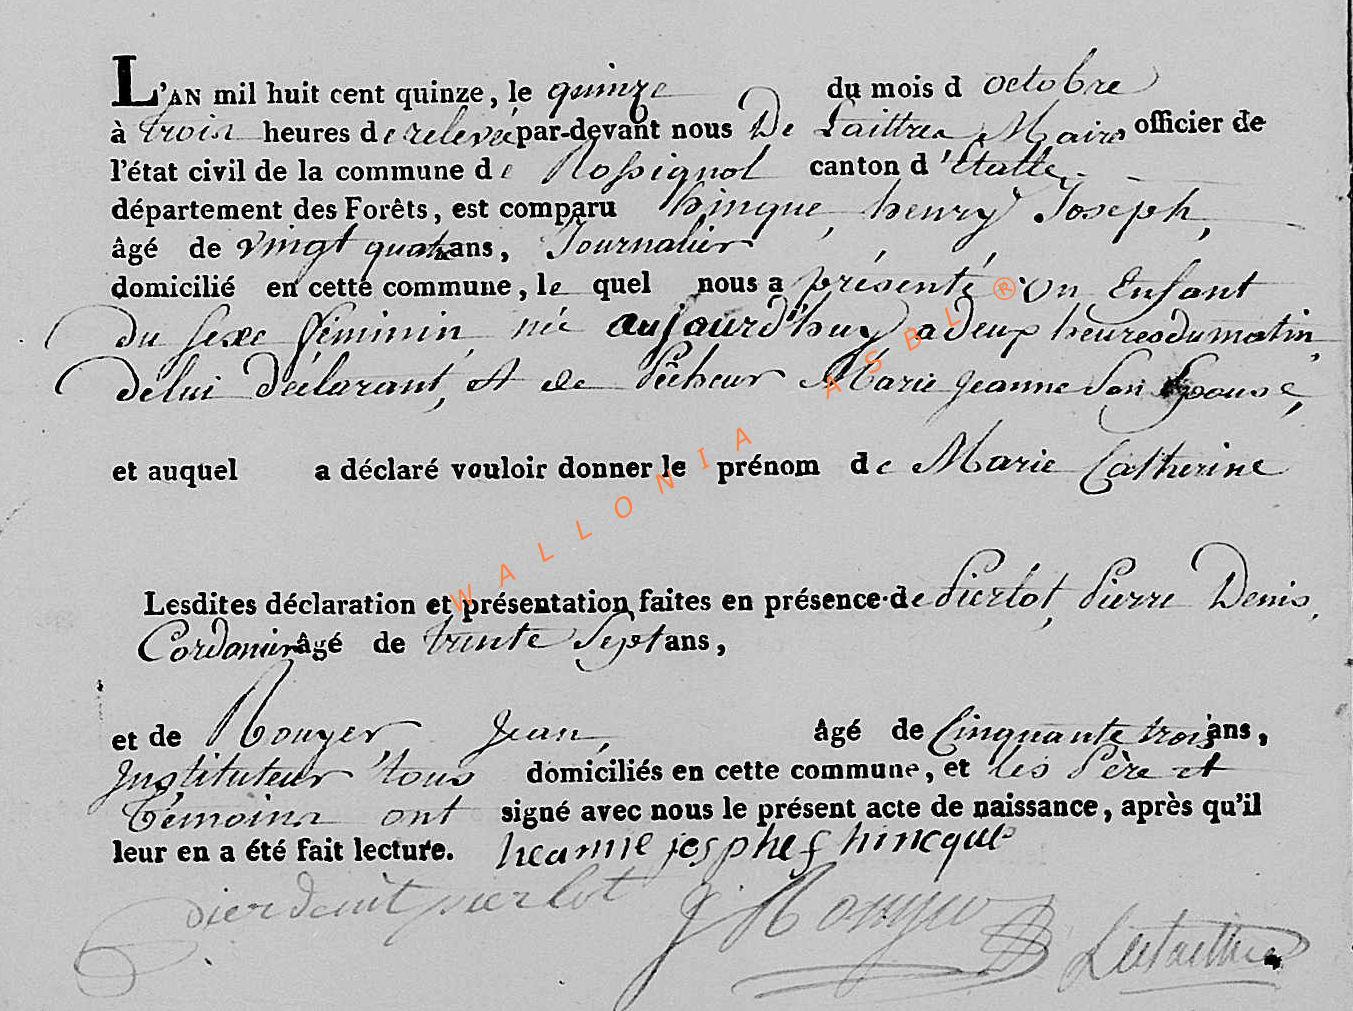 L'AN mil huit cent quinze, le quinze du mois d octobre
à trois heures de relevée par-devant nous De Laittres Maire officier de
l'état civil de la commune de Rossignol canton d'Etalle
département des Forêts, est comparu hinque, henry Joseph,
âgé de vingt quatre ans, Journalier
domicilié en cette commune, le quel nous a présenté un Enfant
du sexe féminin, née aujourd'huy a deux heures du matin
de lui déclarant, et de Pêcheur Marie Jeanne Son Epouse,
et auquel a déclaré vouloir donner le prénom de Marie Catherine
Lesdites déclaration et présentation faites en présence de Pierlot, Pierre Denis,
Cordonier âgé de trente Sept ans,
et de Rouyer Jean, âgé de Cinquante trois ans,
Instituteur tous domiciliés en cette commune, et les Père et
Témoins ont signé avec nous le présent acte de naissance, après qu'il
leur en a été fait lecture. hearnie josphes hincque
pierdenit pierlot J Rouyer
WALLONIA ASBL ®